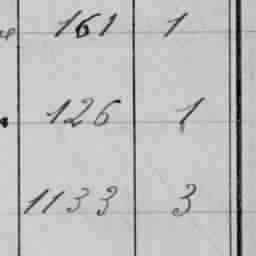 161 1
126 1
1133 3